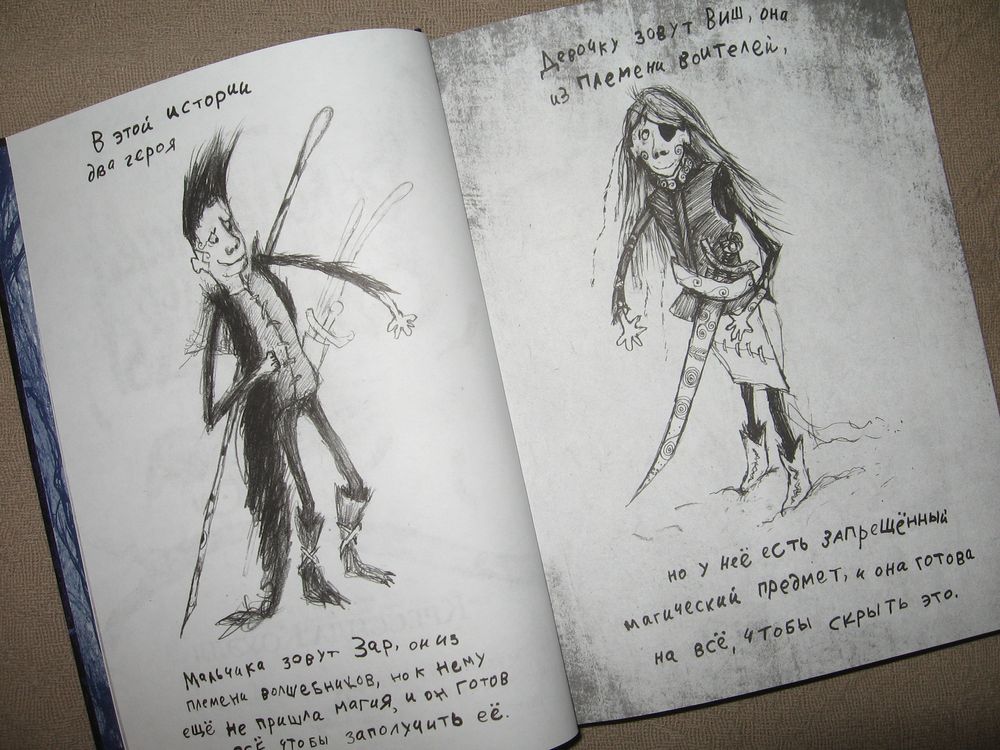 В этой истории
два героя
Мальчика зовут Зар, он из
племени волшебников, но к нему
ещё не пришла магия, и он готов
всё чтобы заполучить её.
Девочку зовут Виш, она
из племени воителей,
но у неё есть запрещённый
магический предмет, и она готова
на всё, чтобы скрыть это.